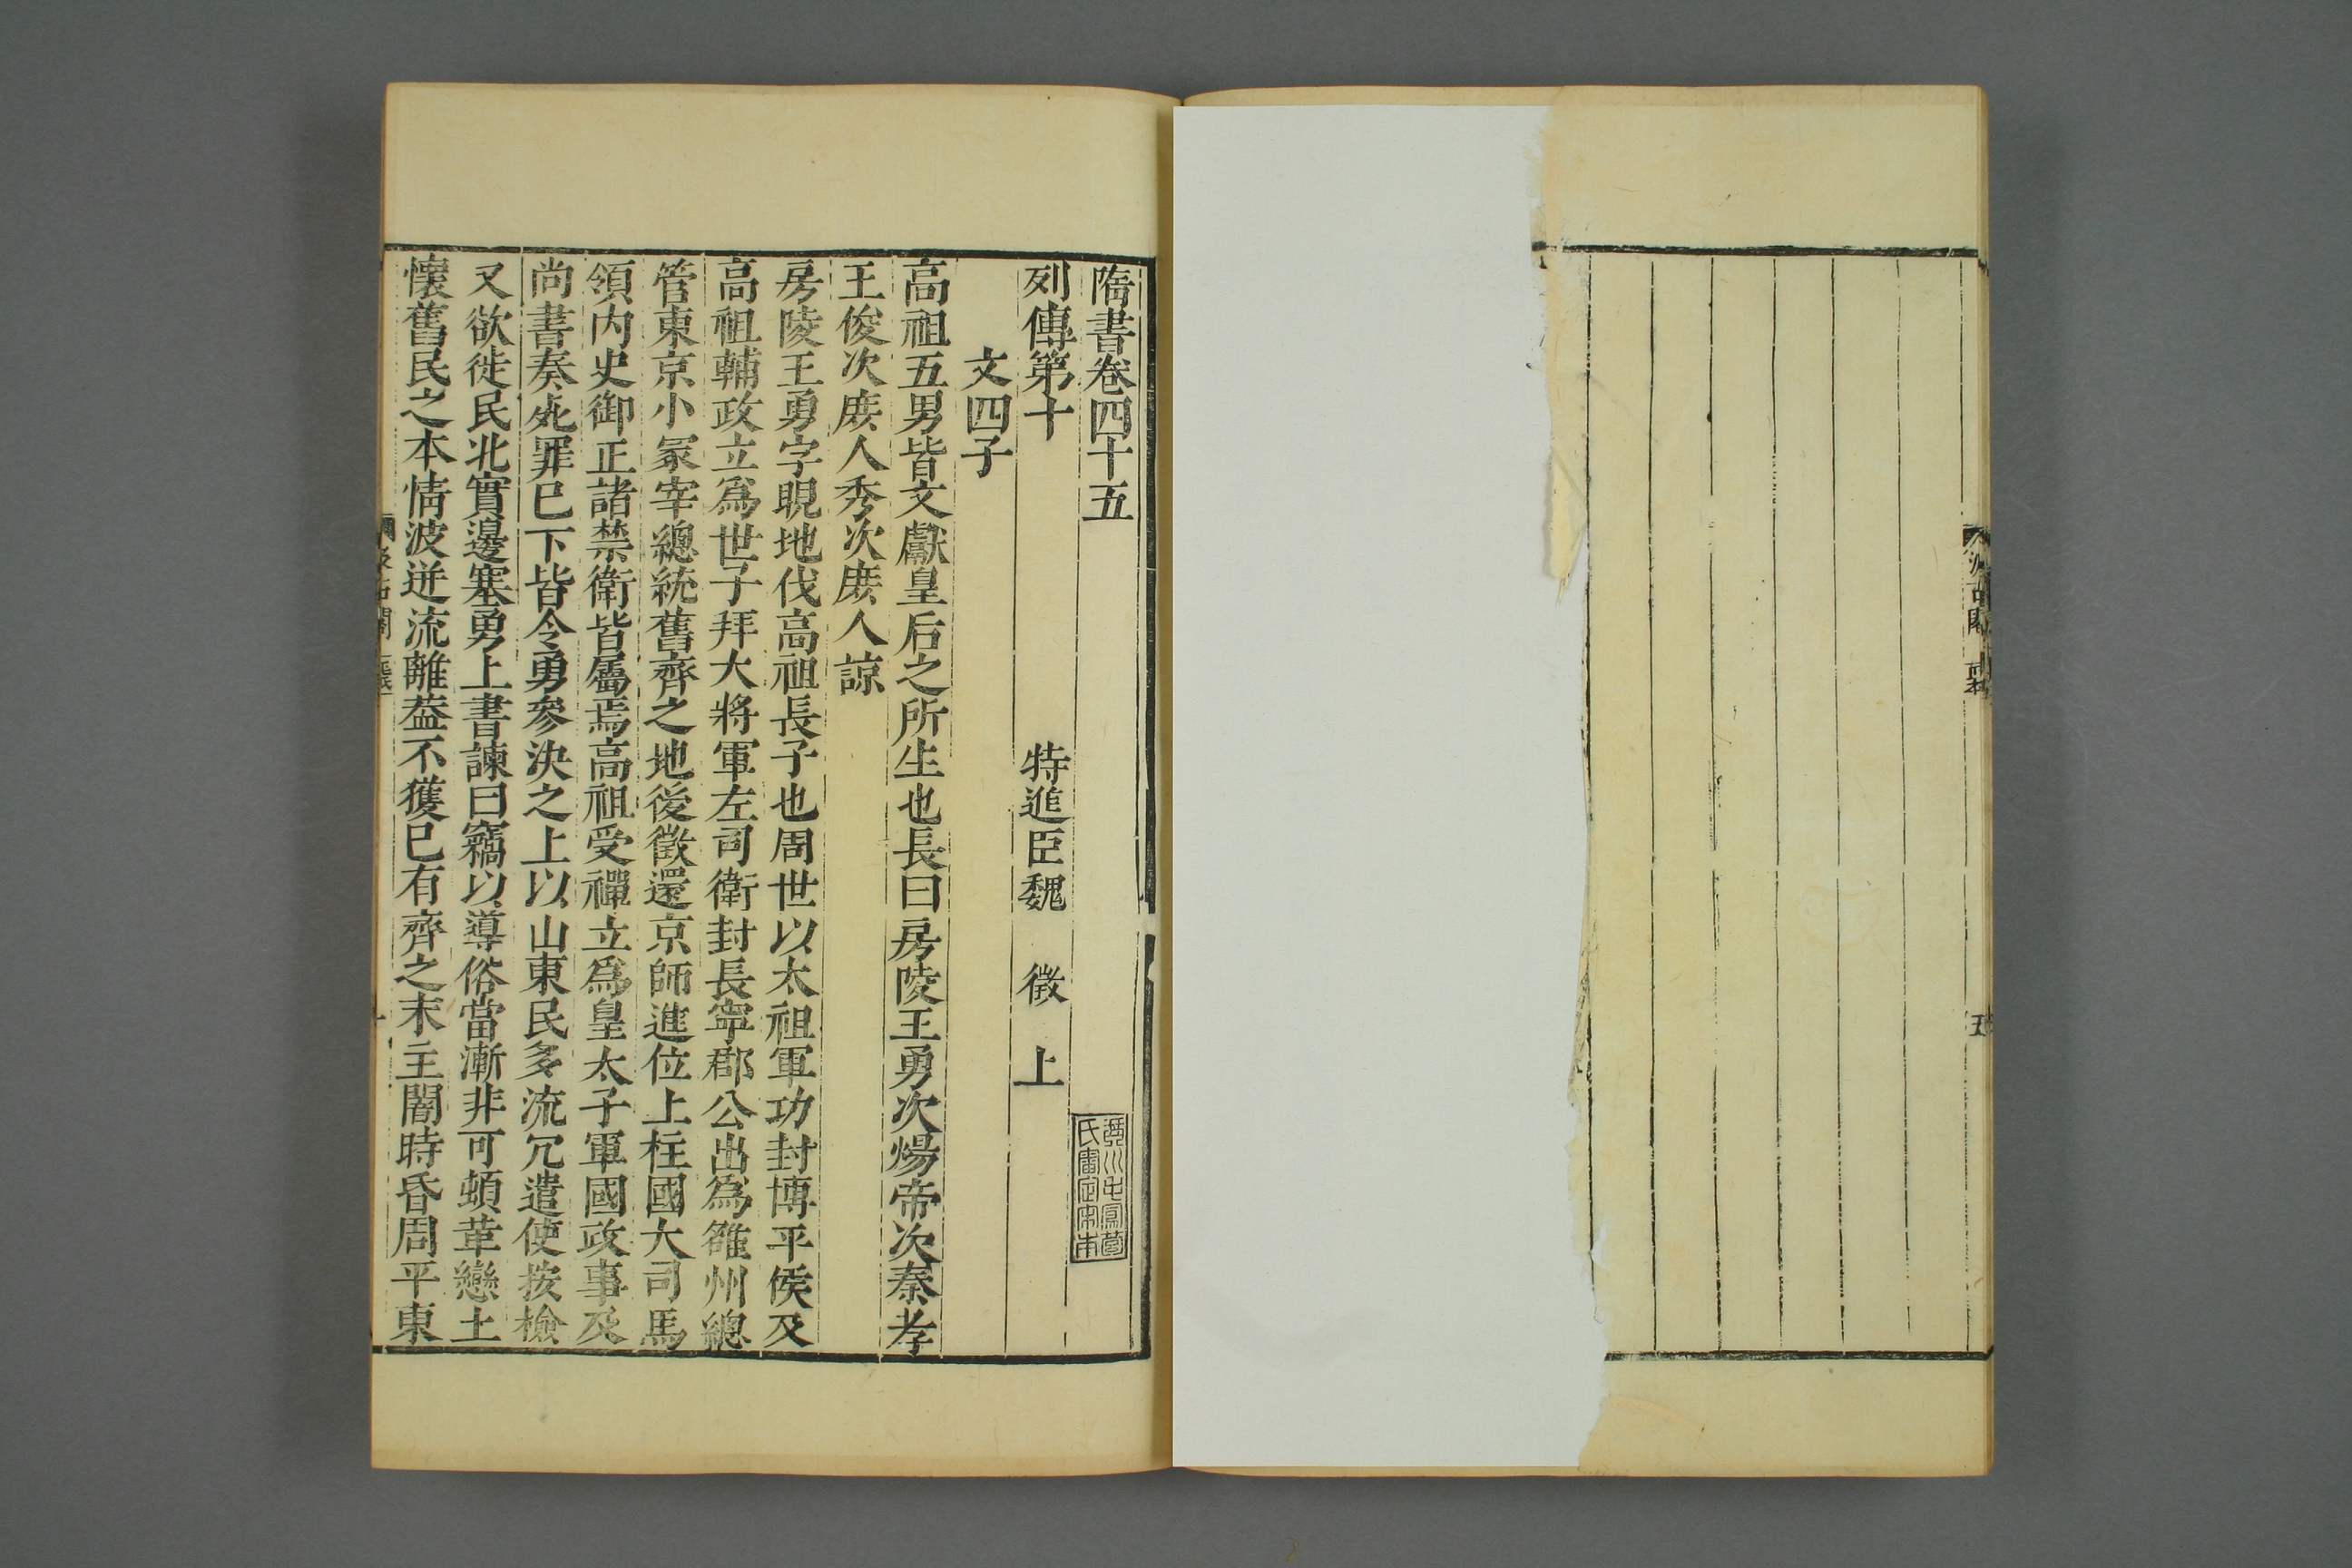 汲古閣
五
隋書卷四十五
琴川毛鳳苞
氏審定宋本
列傳第十
特進臣魏徵上
文四子
高祖五男皆文獻皇后之所生也長曰房陵王勇次煬帝次秦孝
王俊次庶人秀次庶人諒
房陵王勇字睍地伐高祖長子也周世以太祖軍功封博平侯及
高祖輔政立爲世子拜大將軍左司衛封長寧郡公出爲雒州總
管東京小冢宰總統舊齊之地後徵還京師進位上柱國大司馬
領內史御正諸禁衛皆屬焉高祖受禪立爲皇太子軍國政事及
尚書奏死罪已下皆令勇參決之上以山東民多流冗遣使按檢
又欲徙民北實邊塞勇上書諫曰竊以導俗當漸非可頓革戀土
懷舊民之本情波迸流離葢不獲已有齊之末主闇時昏周平東